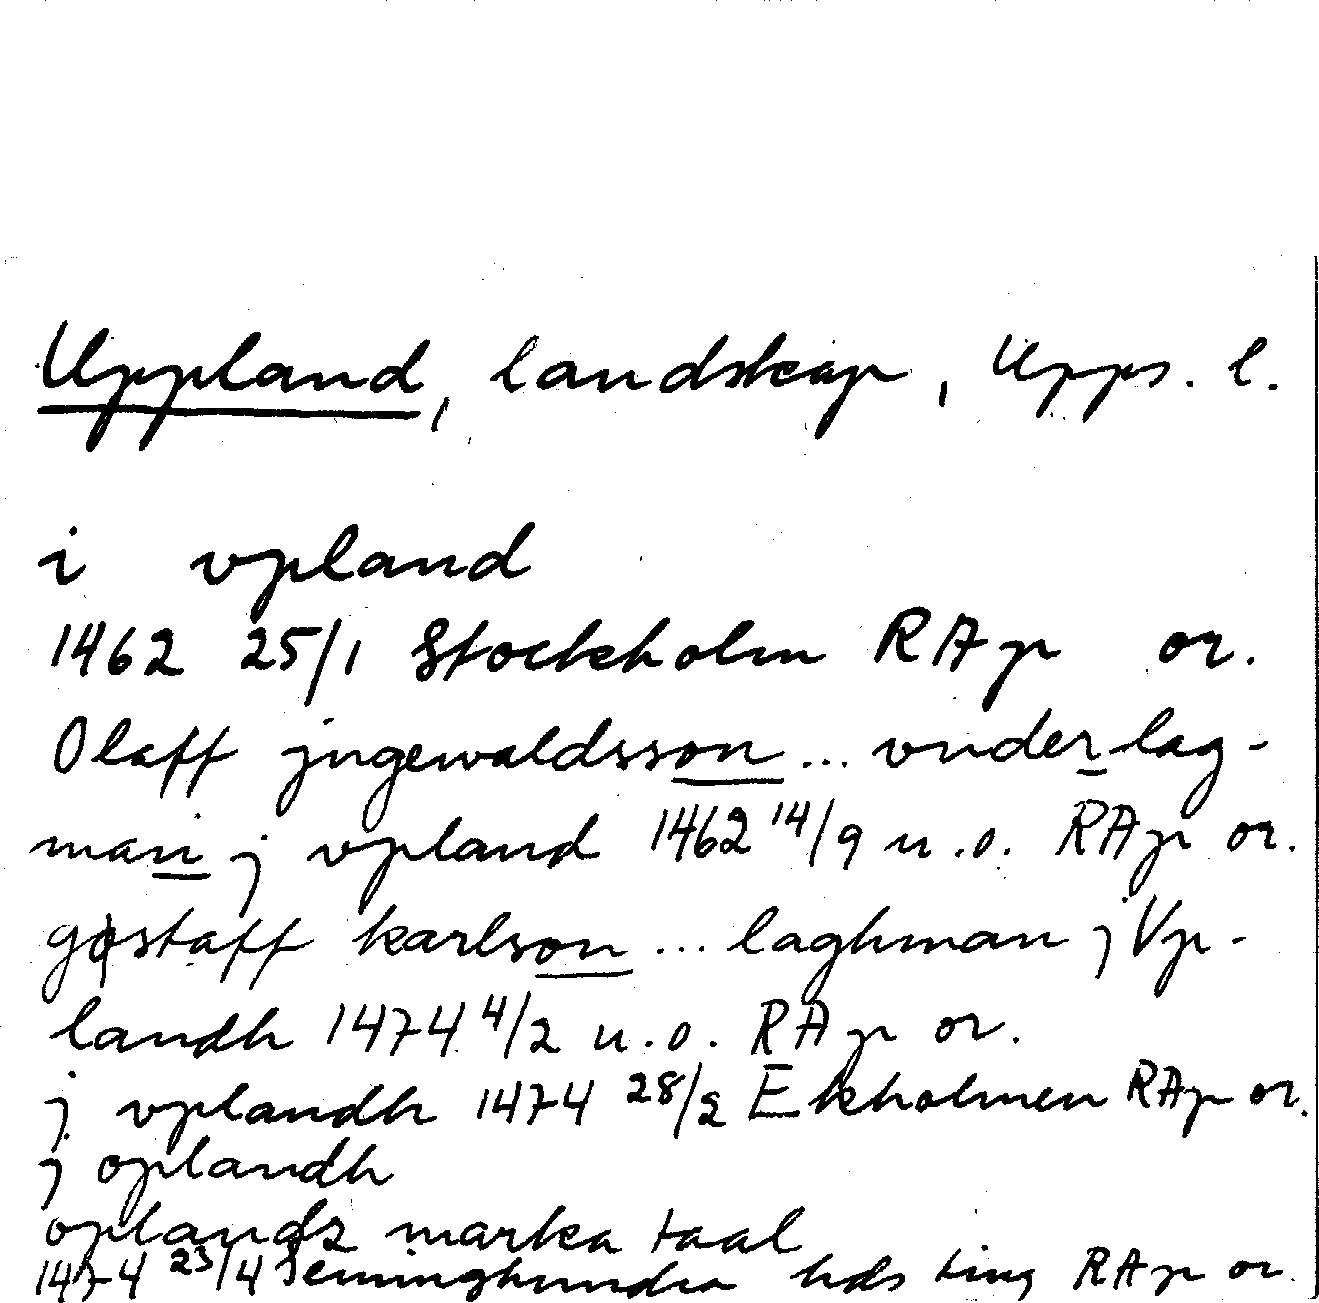 Uppland, landskap, Upps. l.
i vpland
1462 25/1 Stockholm RAp or.
Olaff jngewaldsson ... vnderlag-
man j vpland 1462 14/9 u.o. RAp or.
gøstaff karlson ... laghman j Vp-
landh 1474 4/2 u.o. RAp or.
j vplandh 1474 28/2 Ekholmen RAp or.
j oplandh
oplandz marka taal
1474 23/4 Seminghundra hds ting RAp or.